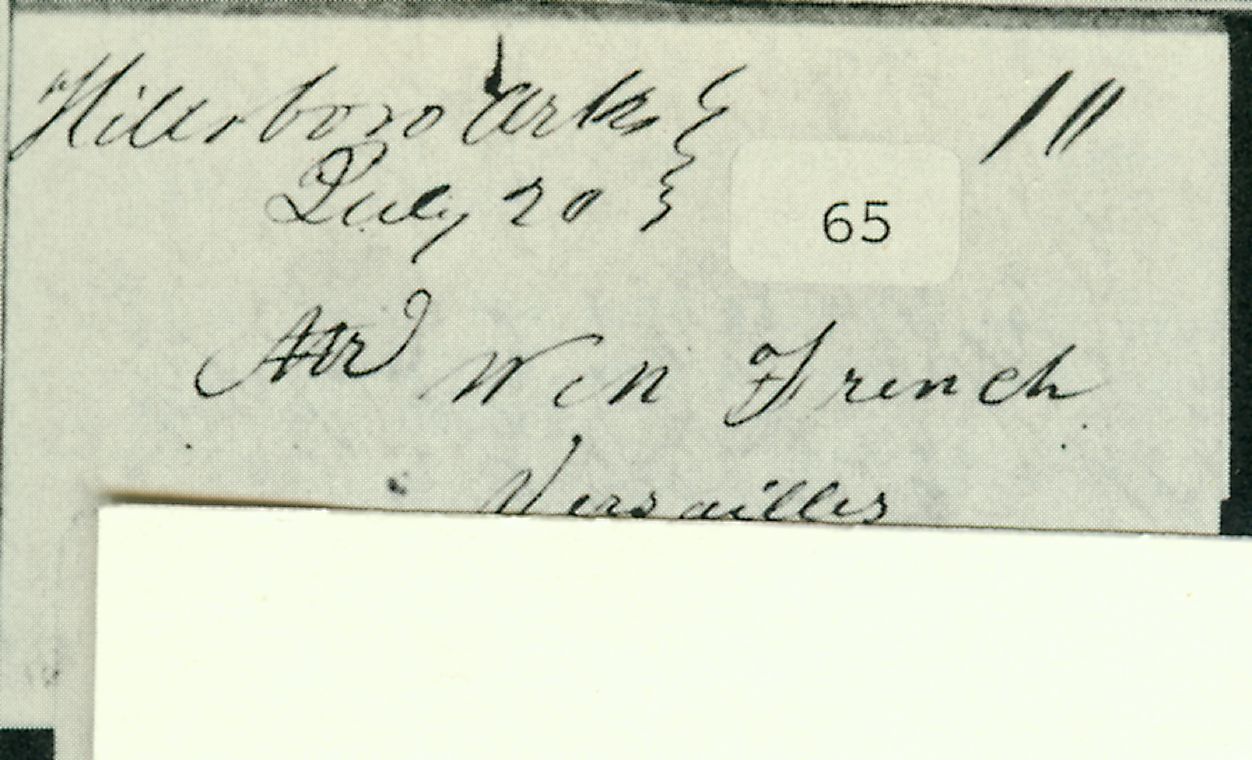 Hillsboro Arks } 10
July 20 }
65
Mr Wm French
Versailles